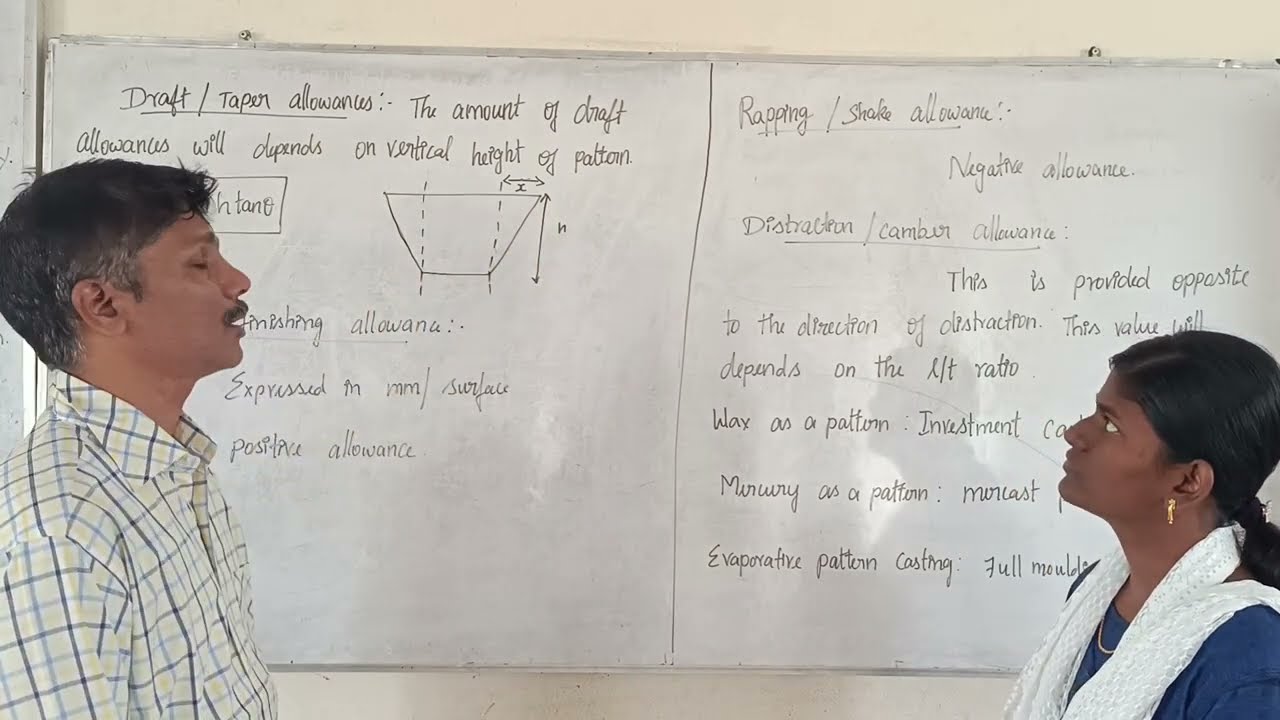 Draft / Taper allowances:- The amount of draft
allowances will depends on vertical height of pattern.
htanθ
x
h
finishing allowance:-
Expressed in mm/ surface
positive allowance.
Rapping / Shake allowance:-
Negative allowance.
Distraction / camber allowance:
This is provided opposite
to the direction of distraction. This value will
depends on the l/t ratio.
Wax as a pattern : Investment
Mercury as a pattern : mercast
Evaporative pattern casting: Full